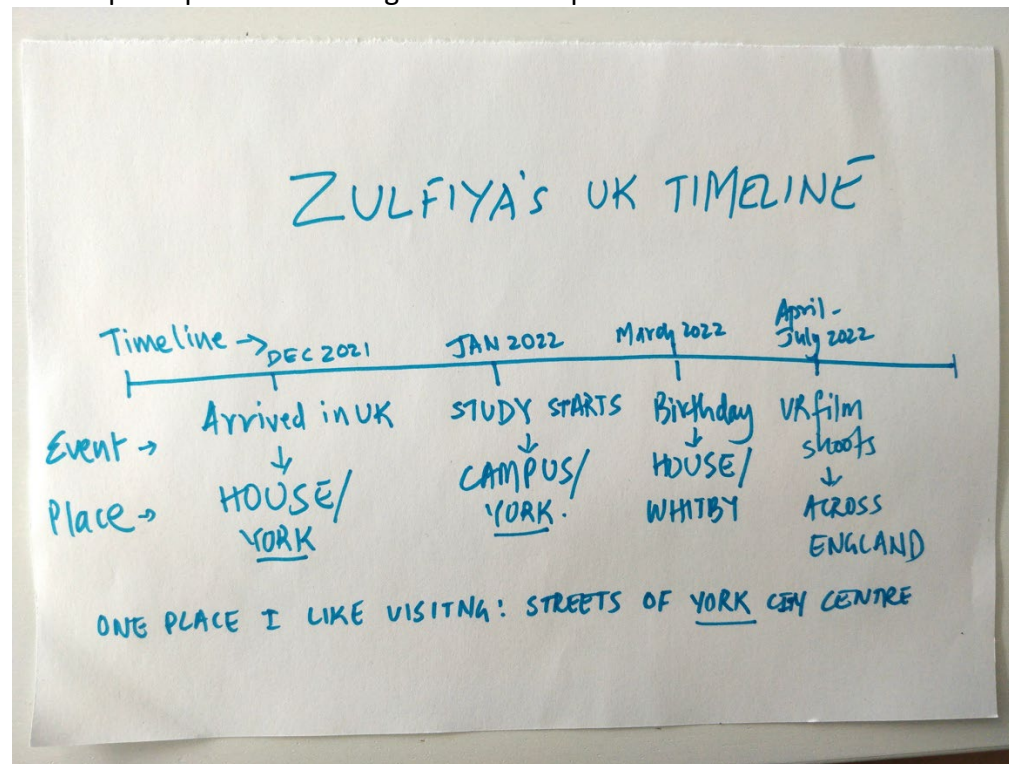 ZULFIYA'S UK TIMELINE
Timeline → DEC 2021 JAN 2022 March 2022 April - July 2022
Event → Arrived in UK STUDY STARTS Birthday VR film shoots
↓ ↓ ↓ ↓
Place → HOUSE/ YORK CAMPUS/ YORK. HOUSE/ WHITBY ACROSS ENGLAND
ONE PLACE I LIKE VISITNG: STREETS OF YORK CITY CENTRE